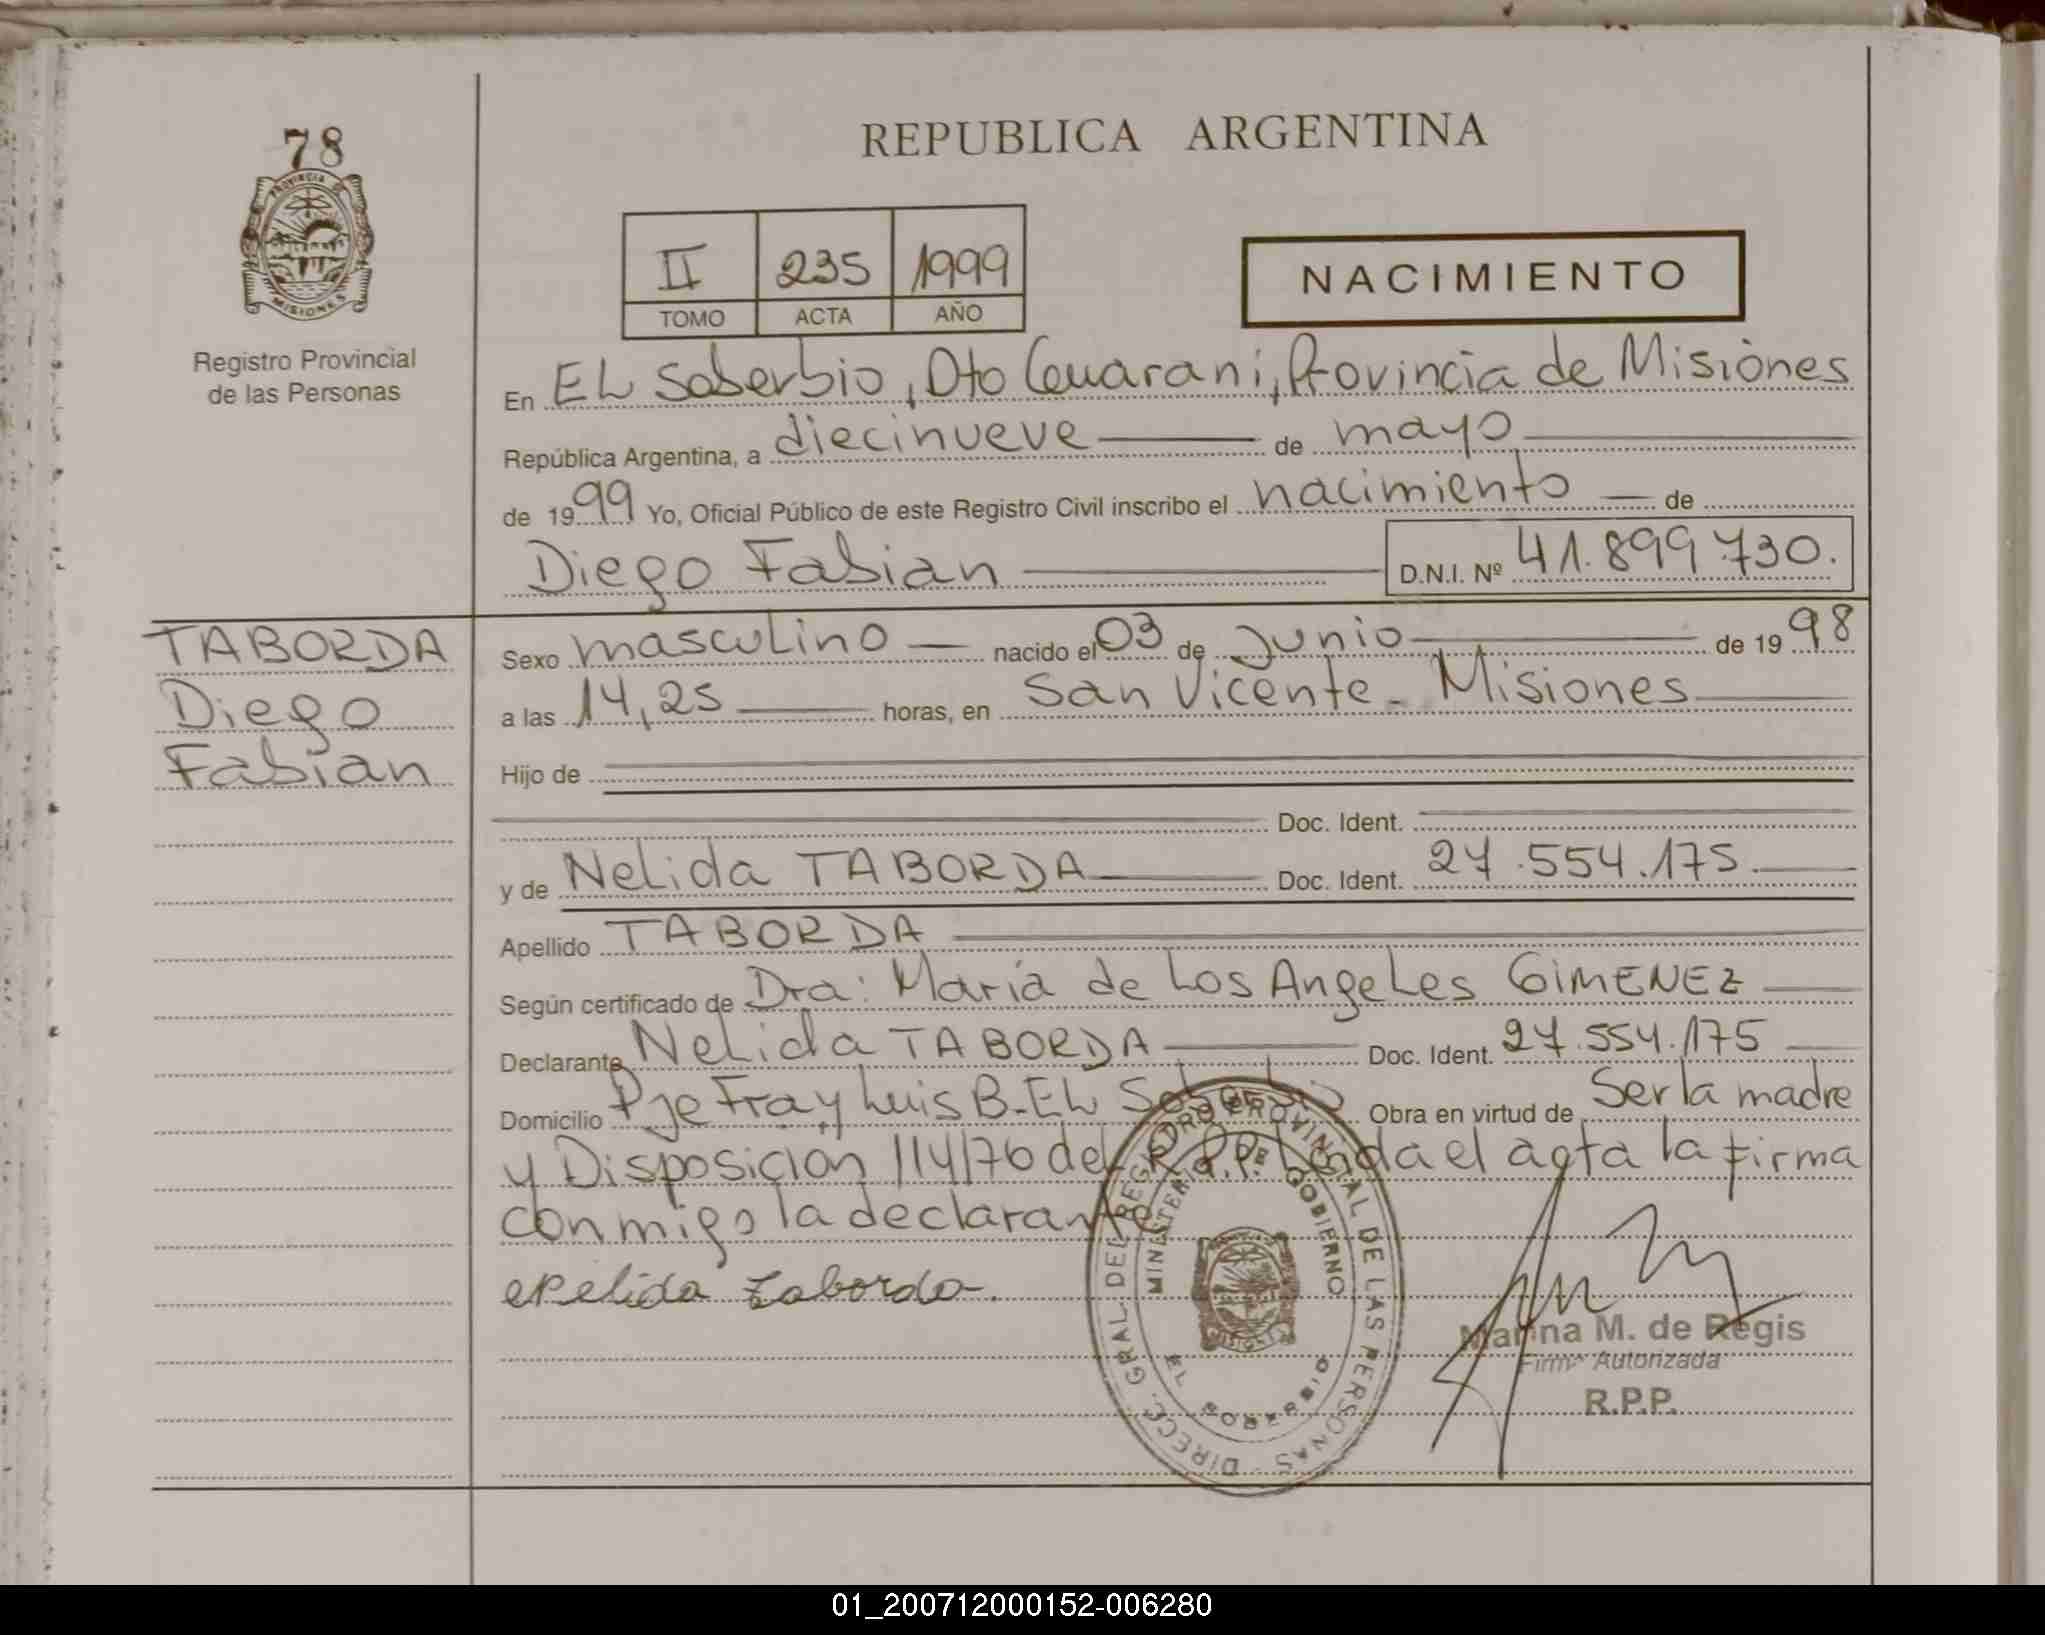 78
PROVINCIA DE
MISIONES
Registro Provincial
de las Personas
REPUBLICA ARGENTINA
II 235 1999
TOMO ACTA AÑO
NACIMIENTO
En EL Soberbio, Dto Guarani, Provincia de Misiones
República Argentina, a diecinueve de mayo
de 1999 Yo, Oficial Público de este Registro Civil inscribo el nacimiento de
Diego Fabian D.N.I. Nº 41.899.730.
TABORDA
Diego
Fabian
Sexo masculino nacido el 03 de Junio de 1998
a las 14,25 horas, en San Vicente - Misiones
Hijo de
Doc. Ident.
y de Nelida TABORDA Doc. Ident. 27.554.175
Apellido TABORDA
Según certificado de Dra: María de Los Angeles GIMENEZ
Declarante Nelida TABORDA Doc. Ident. 27.554.175
Domicilio Pje Fray Luis B. EL Soberbio Obra en virtud de Ser la madre
y Disposicion 114/76 del R.P.P. Leida el acta la firma
conmigo la declarante
Nelida Taborda.
DIRECC. GRAL. DEL REGISTRO PROVINCIAL DE LAS PERSONAS
MINISTERIO DE GOBIERNO
EL SOBERBIO
Marina M. de Regis
Firma Autorizada
R.P.P.
01_200712000152-006280